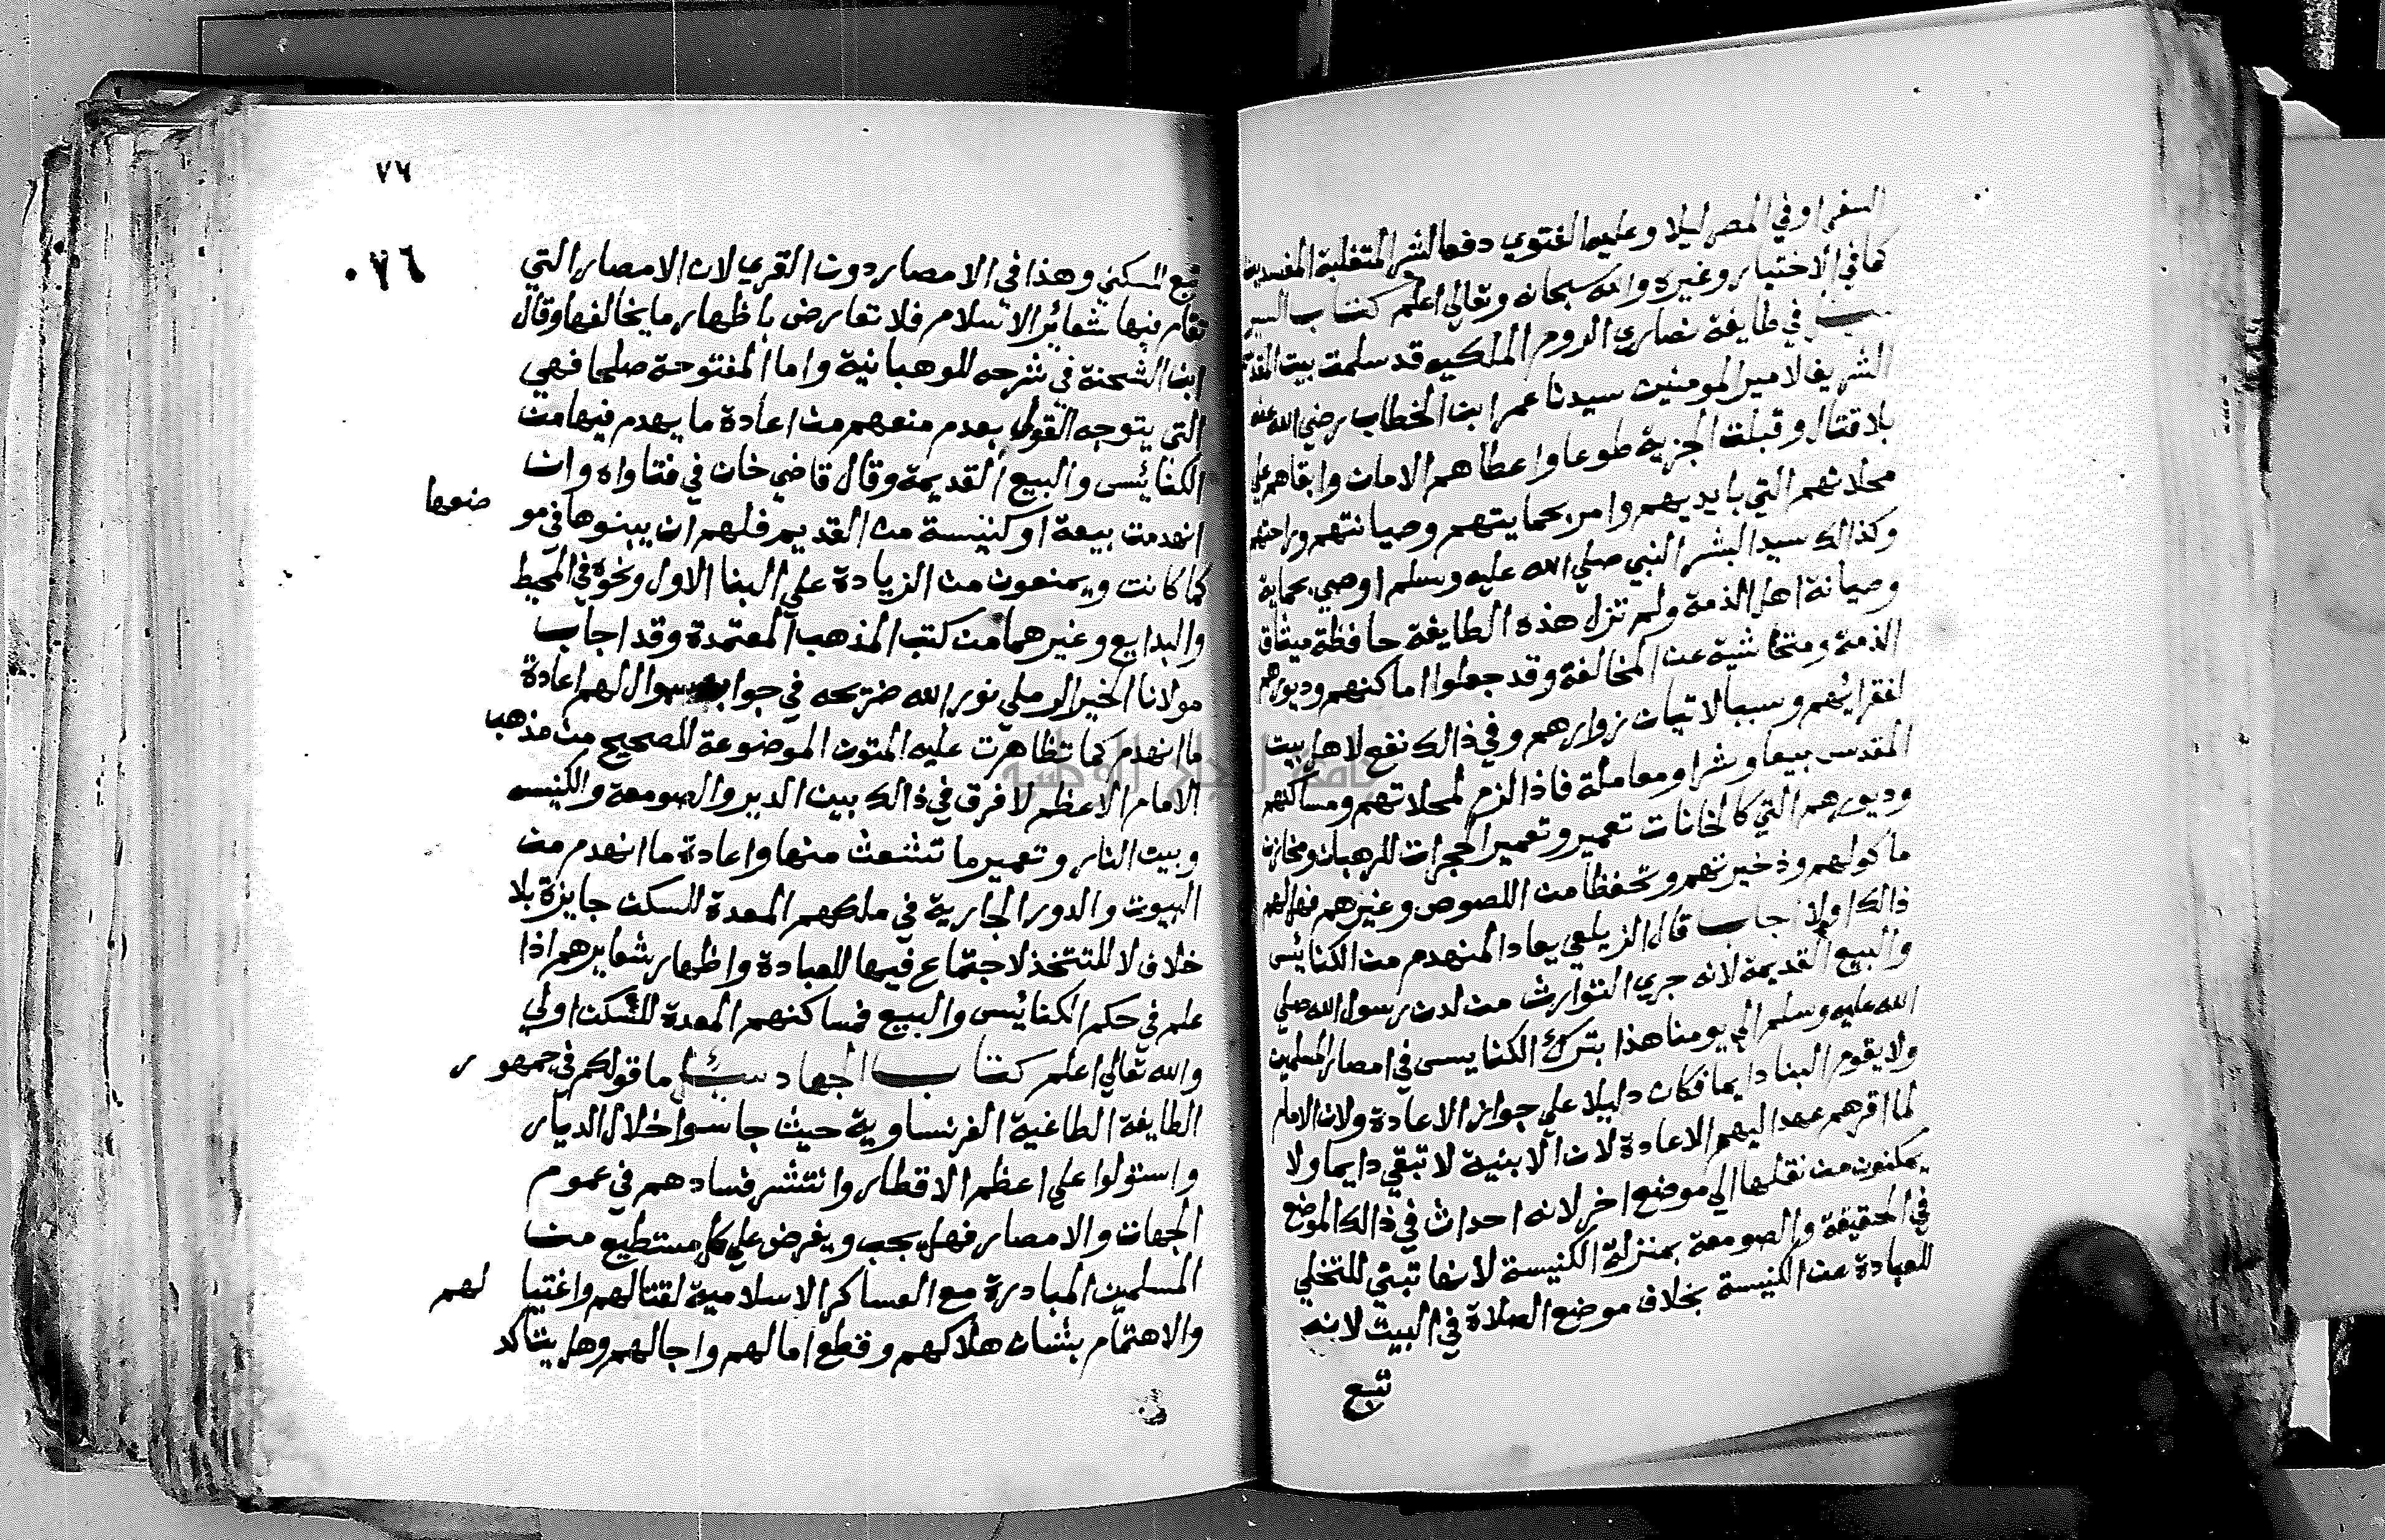 السفر او في المصر ليلا وعليه الفتوي دفعا لشر المتغلبة المفسدين
كما في الاختيار وغيره والله سبحانه وتعالي اعلم كتاب السير
سئل في طايفة نصاري الروم الملكيه قد سلمت بيت المقدس
الشريف لامير المومنين سيدنا عمر ابن الخطاب رضي الله عنه
بلا قتال وقبلت الجزية طوعا واعطاهم الامان وابقاهم علي
محلاتهم التي بايديهم وامر بحمايتهم وصيانتهم وراحتهم
وكذالك سيد البشر النبي صلي الله عليه وسلم اوصي بحماية
وصيانة اهل الذمة ولم تزل هذه الطايفة حافظة ميثاق
الذمة ومتحاشية عن المخالفة وقد جعلوا اماكنهم وديورهم
لفقرائهم وسببا لاتيان زوارهم وفي ذالك نفع لاهل بيت
المقدس بيعا وشرا ومعاملة فاذا لزم لمحلاتهم ومساكنهم
وديورهم التي كالخانات تعمير وتعمير الحجرات للرهبان ومخازن
ماكولهم وذخيرتهم وتحفظا من اللصوص وغيرهم فهل لهم
ذالك اولا اجاب قال الزيلعي يعاد المنهدم من الكنائس
والبيع القديمة لانه جري التوارث من لدن رسول الله صلي
الله عليه وسلم الي يومنا هذا بترك الكنايس في امصار المسلمين
ولا يقوم البنا دايما فكان دليلا علي جواز الاعادة ولان الامام
لما اقرهم عهد اليهم الاعادة لان الابنية لا تبقي دايما ولا
يمكنون من نقلها الي موضع اخر لانه احداث في ذالك الموضع
في الحقيقة والصومعة بمنزلة الكنيسة لانها تبني للتخلي
للعبادة عن الكنيسة بخلاف موضع الصلاة في البيت لانه
تبع
٧٦
٠٧٦
تبع للسكني وهذا في الامصار دون القري لان الامصار التي
تقام فيها شعائر الاسلام فلا تعارض باظهار ما يخالفها وقال
ابن الشحنة في شرحه للوهبانية واما المفتوحة صلحا فهي
التي يتوجه القول بعدم منعهم من اعادة ما يهدم فيها من
الكنائس والبيع القديمة وقال قاضي خان في فتاواه وان
انهدمت بيعة او كنيسة من القديم فلهم ان يبنوها في مو ضعها
كما كانت ويمنعون من الزيادة علي البنا الاول ونحوه في المحيط
والبدايع وغيرهما من كتب المذهب المعتمدة وقد اجاب
مولانا الخير الرملي نور الله ضريحه في جواب سوال لهم اعادة
ما انهدم كما تظاهرت عليه المتون الموضوعة للصحيح من مذهب
الامام الاعظم لا فرق في ذالك بين الدير والصومعة والكنيسه
وبيت النار وتعمير ما تشعث منها واعادة ما انهدم من
البيوت والدور الجارية في ملكهم المعدة للسكن جايزة بلا
خلاف لا للتتخذ لاجتماع فيها للعبادة واظهار شعايرهم اذا
علم في حكم الكنائس والبيع فمساكنهم المعدة للسكن اولي
والله تعالي اعلم كتاب الجهاد سئل ما قولكم في جمهو ر
الطايفة الطاغية الفرنساوية حيث جاسوا خلال الديار
واستولوا علي اعظم الاقطار وانتشر فسادهم في عموم
الجهات والامصار فهل يجب ويفرض علي كل مستطيع من
المسلمين المبادرة مع العساكر الاسلامية لقتالهم واغتيا لهم
والاهتمام بشان هلاكهم وقطع امالهم واجالهم وهل يتاكد